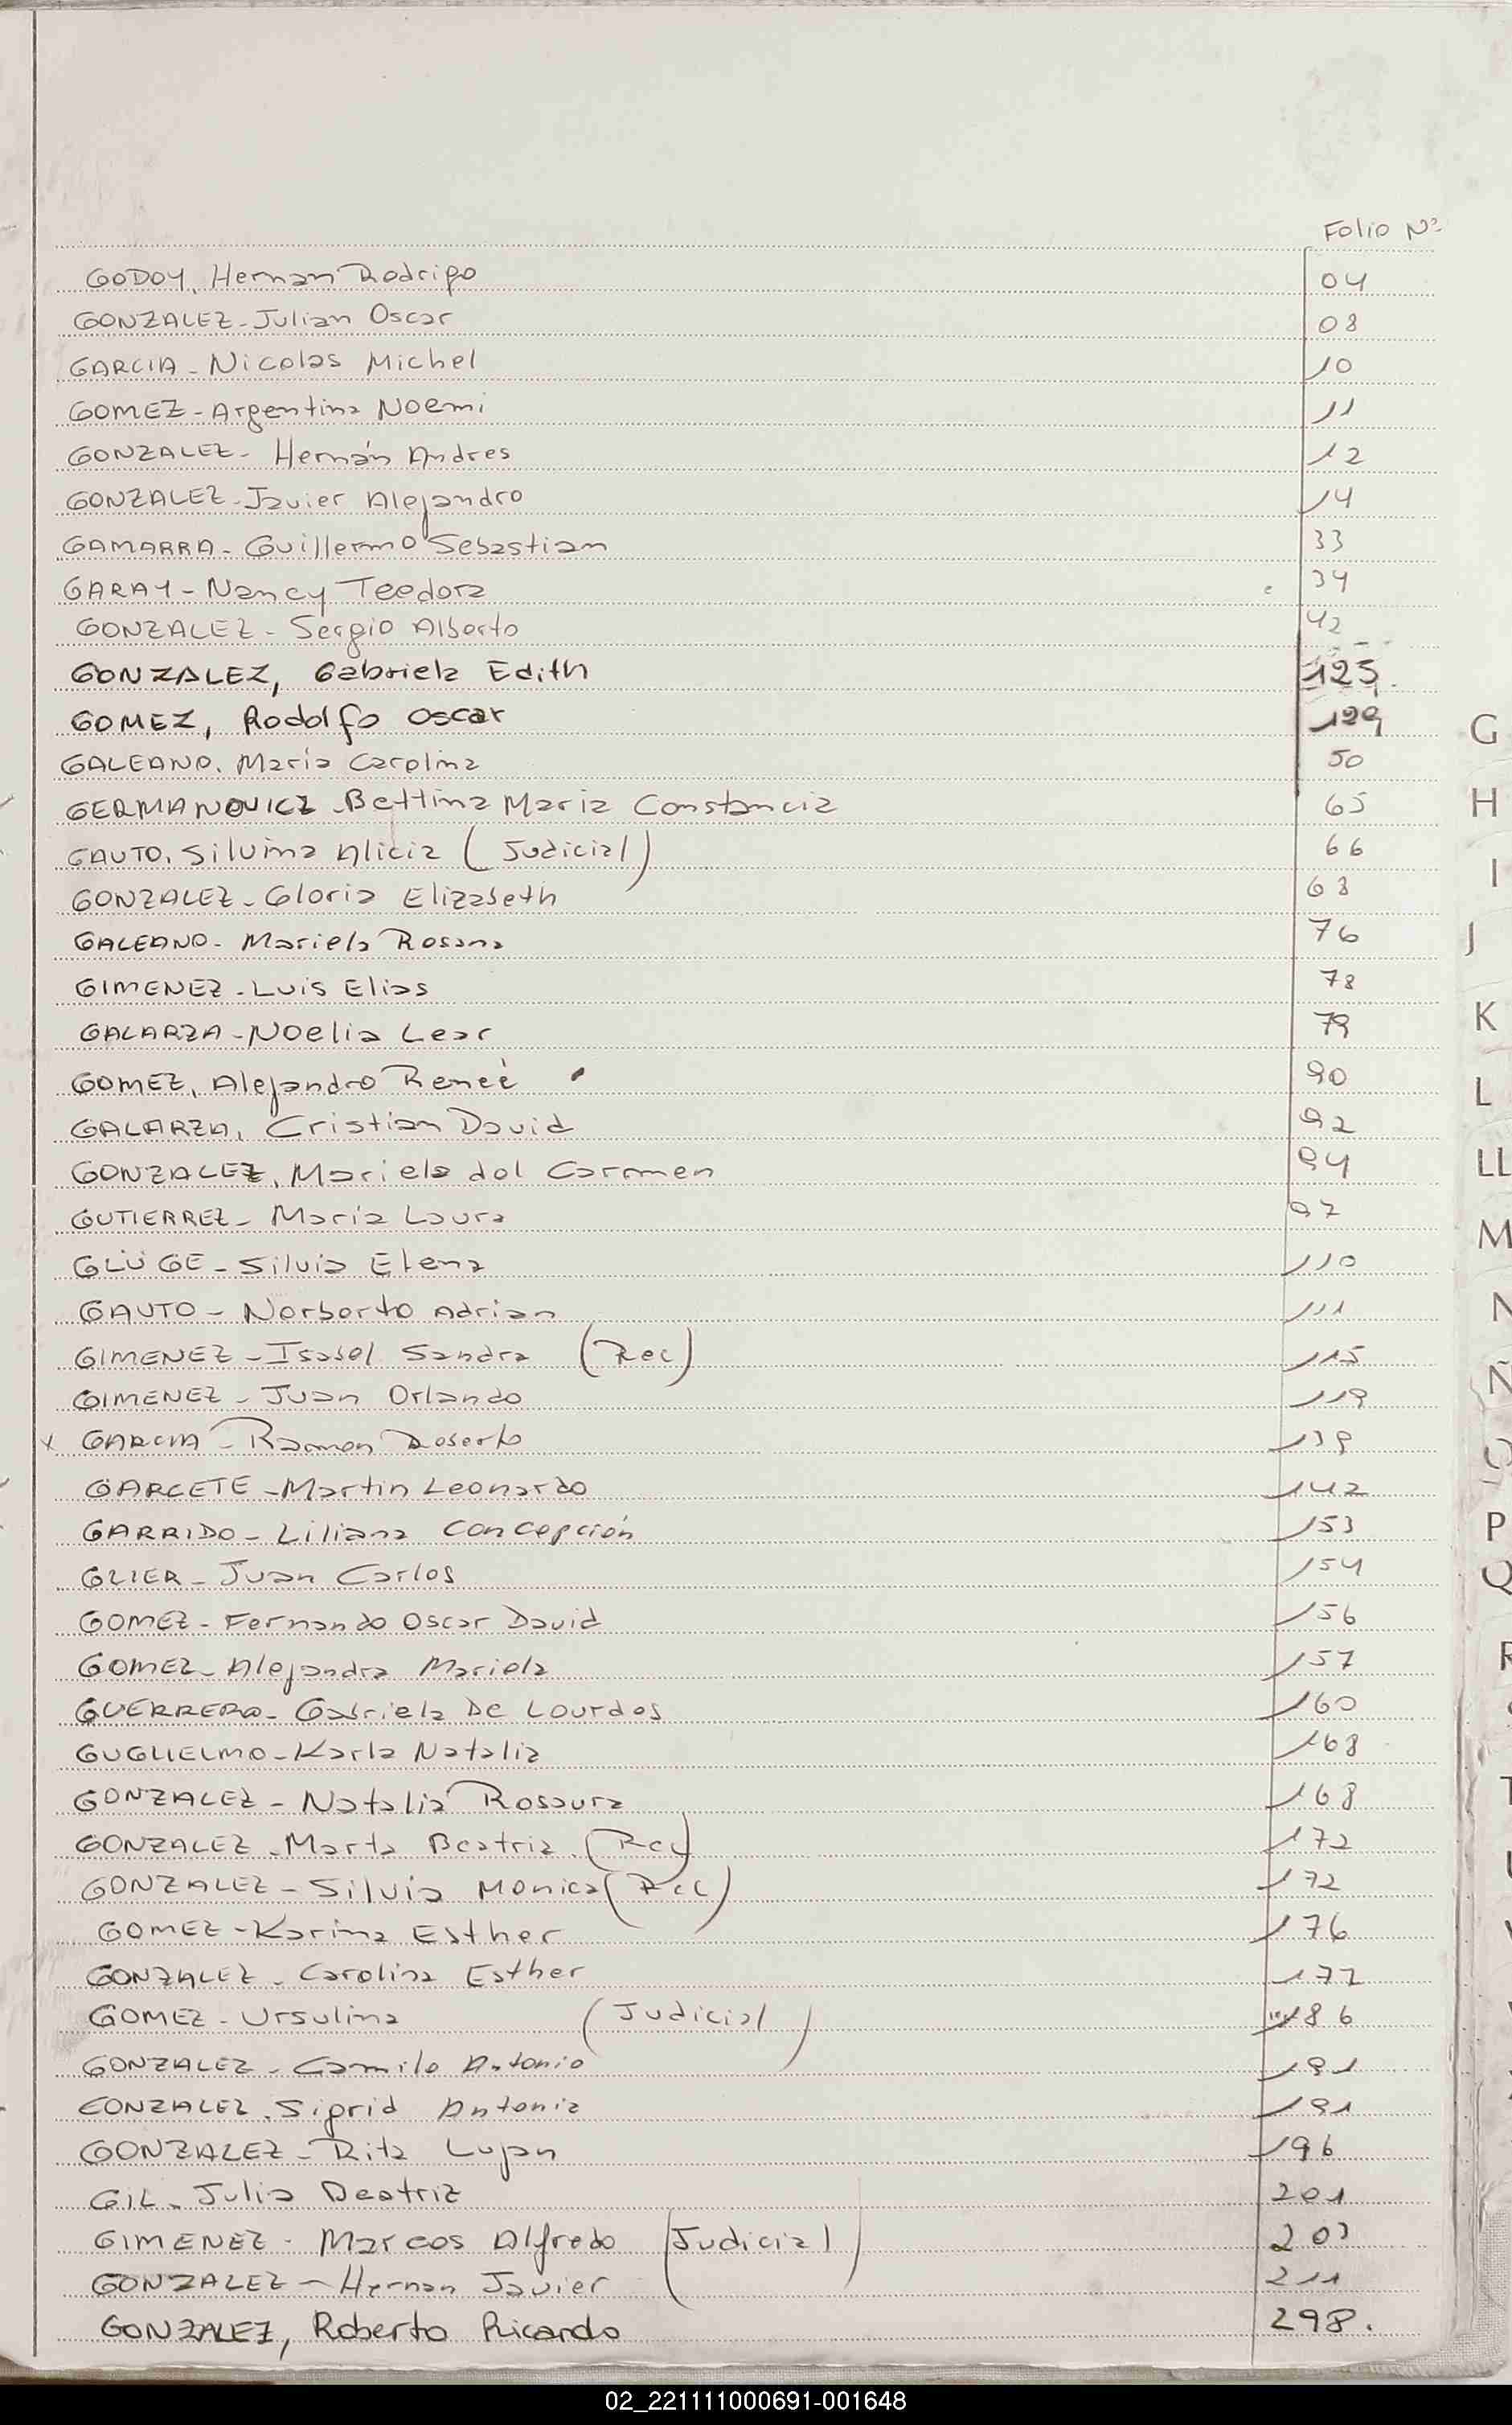 Folio Nº
GODOY, Hernan Rodrigo 04
GONZALEZ - Julian Oscar 08
GARCIA - Nicolas Michel 10
GOMEZ - Argentina Noemi 11
GONZALEZ - Hernán Andres 12
GONZALEZ - Javier Alejandro 14
GAMARRA - Guillermo Sebastian 33
GARAY - Nancy Teodora 34
GONZALEZ - Sergio Alberto 42
GONZALEZ, Gabriela Edith 125.
GOMEZ, Rodolfo Oscar 129
GALEANO. María Carolina 50
GERMANOVICZ - Bettina Maria Constancia 65
GAUTO. Silvina Alicia (Judicial) 66
GONZALEZ - Gloria Elizabeth 68
GALEANO - Mariela Rosana 76
GIMENEZ - Luis Elias 78
GALARZA - Noelia Lear 79
GOMEZ, Alejandro Reneé 90
GALARZA, Cristian David 92
GONZALEZ, Mariela del Carmen 94
GUTIERREZ - María Laura 97
GLÜGE - Silvia Elena 110
GAUTO - Norberto Adrian 111
GIMENEZ - Isabel Sandra (Rec) 115
GIMENEZ - Juan Orlando 119
x GARCIA - Ramon Roberto 139
GARCETE - Martin Leonardo 142
GARRIDO - Liliana Concepción 153
GLIER - Juan Carlos 154
GOMEZ - Fernando Oscar David 156
GOMEZ - Alejandra Mariela 157
GUERRERO - Gabriela De Lourdes 160
GUGLIELMO - Karla Natalia 168
GONZALEZ - Natalia Rosaura 168
GONZALEZ - Marta Beatriz. (Rec) 172
GONZALEZ - Silvia Monica (Rec) 172
GOMEZ - Karina Esther 176
GONZALEZ - Carolina Esther 177
GOMEZ - Ursulina (Judicial) 186
GONZALEZ - Camilo Antonio 191
GONZALEZ. Sigrid Antonia 191
GONZALEZ - Rita Lujan 196
GIL - Julia Beatriz 201
GIMENEZ - Marcos Alfredo (Judicial) 203
GONZALEZ - Hernan Javier 211
GONZALEZ, Roberto Ricardo 298.
G
H
I
J
K
L
LL
M
N
Ñ
P
Q
R
02_221111000691-001648